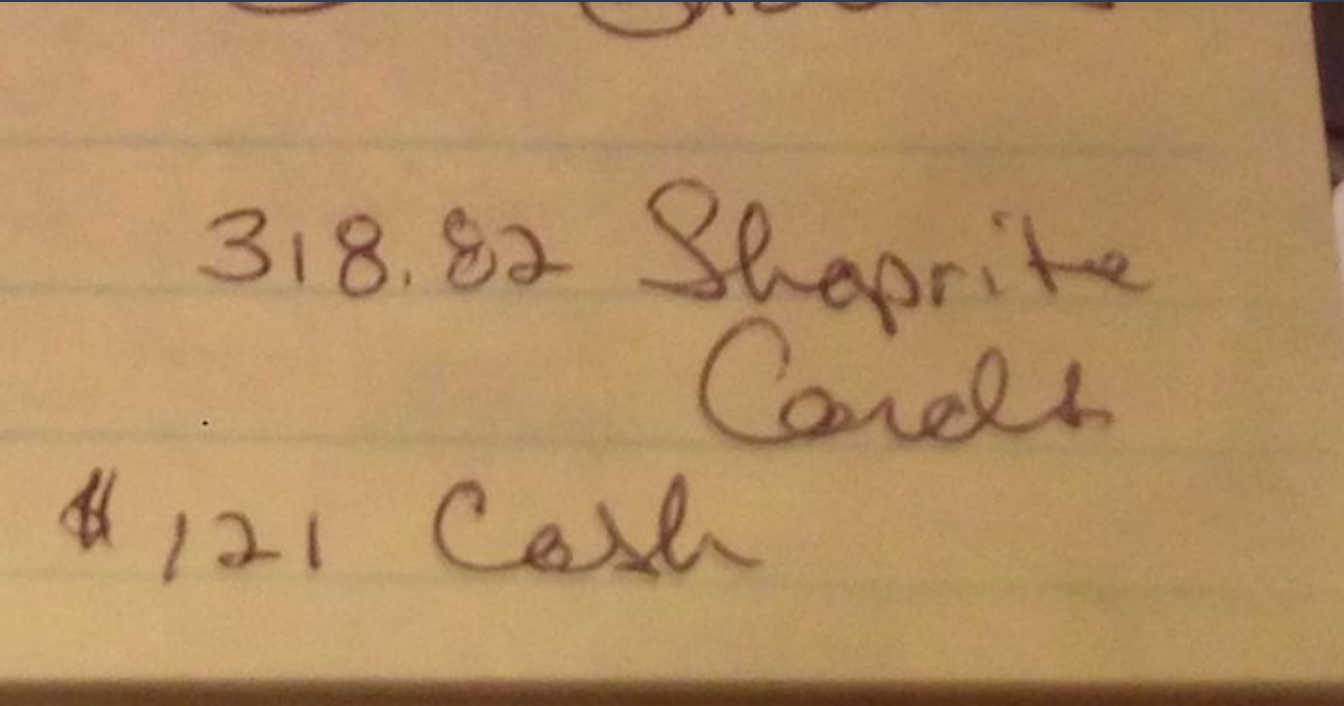 318.82 Shoprite
Cards
$121 Cash